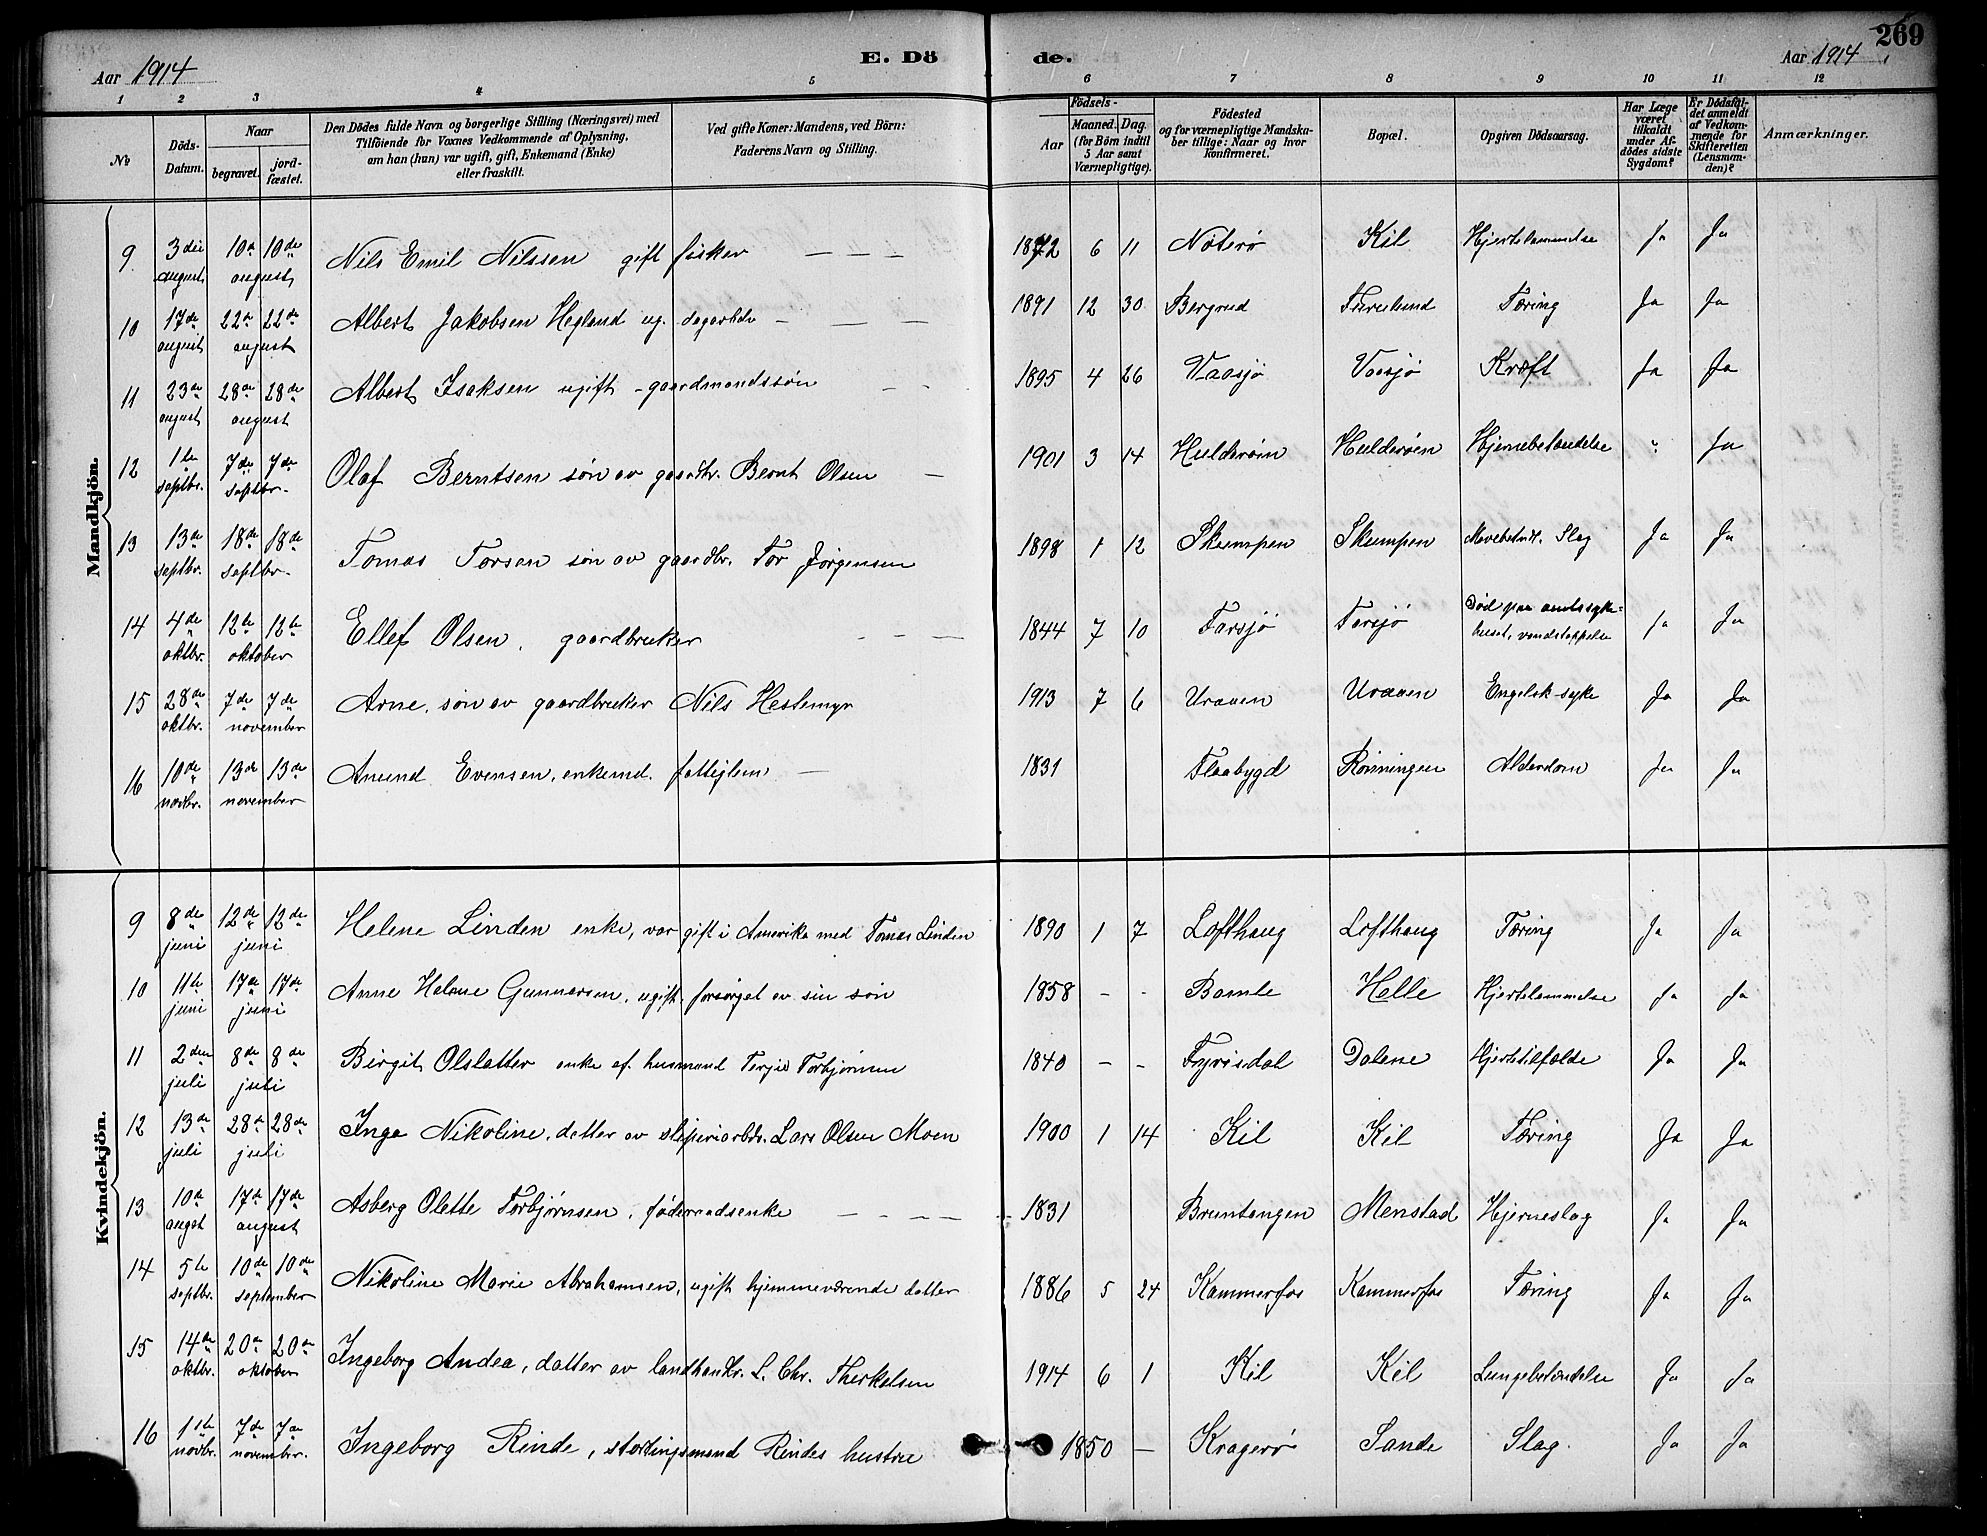 269
Aar 1914
E. Dö de.
Aar 1914
1 2 3 4 5 6 7 8 9 10 11 12
№
Döds-
Datum.
Naar
begravet.
jord-
fæstet.
Den Dödes fulde Navn og borgerlige Stilling (Næringsvei) med
Tilföiende for Voxnes Vedkommende af Oplysning,
om han (hun) var ugift, gift, Enkemand (Enke)
eller fraskilt.
Ved gifte Koner: Mandens, ved Börn:
Faderens Navn og Stilling.
Födsels-
Aar
Maaned. Dag.
(for Börn indtil
5 Aar samt
Værnepligtige).
Födested
og for værnepligtige Mandska-
ber tillige: Naar og hvor
konfirmeret.
Bopæl.
Opgiven Dödsaarsag.
Har Læge
været
tilkaldt
under Af-
dödes sidste
Sygdom?
Er Dödsfal-
det anmeldt
af Vedkom-
mende for
Skifteretten
(Lensman-
den)?
Anmærkninger.
Mandkjön.
9 3die august 10de 10de august Nils Emil Nilssen gift fisker — — — 1872 6 11 Nøterø Kil Hjertelammelse Ja Ja
10 17de august 22de 22de august Albert Jakobsen Hegland ug. dagarbdr — — — 1891 12 30 Bergrud Furulund Tæring Ja Ja
11 23de august 28de 28de august Albert Isaksen ugift - gaardmandssøn — — 1895 4 26 Vaasjø Vaasjø Kræft Ja Ja
12 1te septbr. 7de 7de septbr. Olaf Berntsen søn av gaardbr. Bernt Olsen — 1901 3 14 Hulderøen Hulderøen Hjernebetændelse " Ja
13 13de septbr. 18de 18de septbr. Tomas Torsen søn av gaardbr. Tor Jørgensen 1898 1 12 Skumpen Skumpen Mavebetndt. Slag Ja Ja
14 4de oktbr. 12te 12te oktober Ellef Olsen, gaardbruker — — — 1844 7 10 Farsjø Farsjø Død paa amtssyke-
huset, vandstoppelse Ja Ja
15 28de oktbr. 7de 7de november Arne, søn av gaardbruker Nils Hestemyr 1913 7 6 Uraaen Uraaen Engelsk syke Ja Ja
16 10de novbr. 13de 13de november Anund Evensen, enkemd. fattiglem — 1831 Flaabygd Rønningen Alderdom Ja Ja
Kvindekjön.
9 8de juni 12de 12de juni Helene Linden enke, var gift i Amerika med Tomas Linden 1890 1 7 Lofthaug Lofthaug Tæring Ja Ja
10 11te juni 17de 17de juni Anne Helene Gunnarsen, ugift, forsørget av sin søn 1858 - - Bamle Helle Hjertelammelse Ja Ja
11 2den juli 8de 8de juli Birgit Olslatter enke af. husmand Terjie Torbjørnsen 1840 - - Fyrisdal Dalene Hjertetilfælde Ja Ja
12 13de juli 28de 28de juli Inga Nikoline, datter av sliperiarbdr. Lars Olsen Moen 1900 1 14 Kil Kil Tæring Ja Ja
13 10de augst 17de 17de august Asberg Olette Torbjørnsen, føderaadsenke — — — — 1831 Bruntangen Menstad Hjerneslag Ja Ja
14 5te septbr. 10de 10de september Nikoline Marie Abrahamsen, ugift hjemmeværende datter 1886 5 24 Kammerfos Kammerfos Tæring Ja Ja
15 14de oktbr. 20de 20de oktober Ingeborg Andea, datter av landhandlr. L. Chr. Therkelsen 1914 6 1 Kil Kil Lungebetændelse Ja Ja
16 1te novbr. 7de 7de november. Ingeborg Rinde, stortingsmand Rindes hustru 1850 — Kragerø Sande Slag. Ja Ja